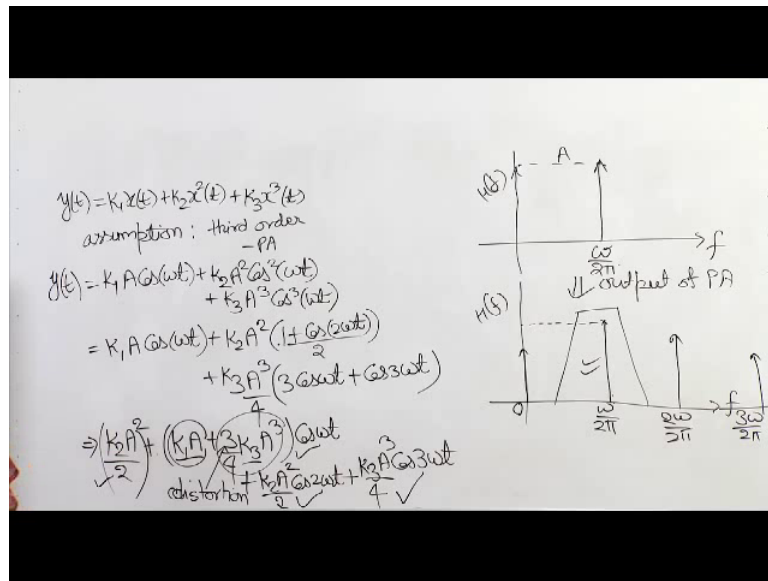 y(t) = K₁x(t) + K₂x²(t) + K₃x³(t)
assumption : third order
- PA
y(t) = K₁ A Cos(ωt) + K₂A² Cos²(ωt)
+ K₃A³ Cos³(ωt)
= K₁ A Cos(ωt) + K₂A² (1 + Cos(2ωt))/2
+ K₃A³/4 (3 Cosωt + Cos3ωt)
⇒ (K₂A²/2) + (K₁A + 3/4 K₃A³) Cosωt
distortion + K₂A²/2 Cos2ωt + K₃A³/4 Cos3ωt
A
H(f)
ω/2π
f
⇓ output of PA
H(f)
0
ω/2π
2ω/2π
f
3ω/2π